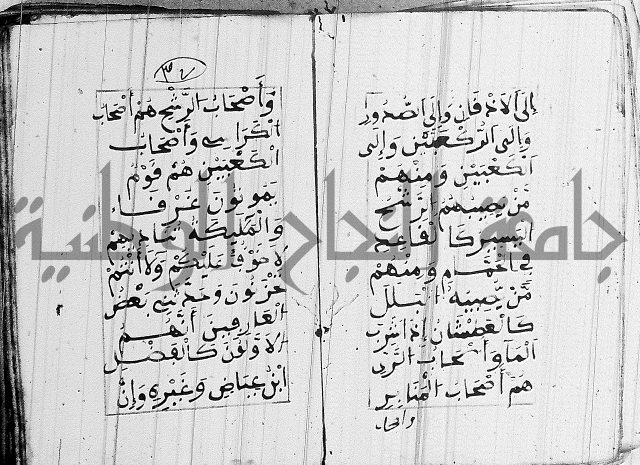 إلى الاذقان وإلى الصدور
وإلى الركعتين وإلى
الكعبين ومنهم
من يصيبهم الرشح
اليسير كالقاعد
في الحمام ومنهم
من يصيبه البلل
كالعطشان إذا شرب
الما وأصحاب الري
هم أصحاب المنابر
وأصحا
٣٧
وأصحاب الرشح هم أصحاب
الكراسي وأصحاب
الكعبين هم قوم
يموتون غرقاء
والمليكة تناديهم
لا خوف عليكم ولا أنتم
تحزنون وحدثني بعض
العارفين أنهم
الاولون كالفضل
ابن عياض وغيره وإن
جامعة النجاح الوطنية